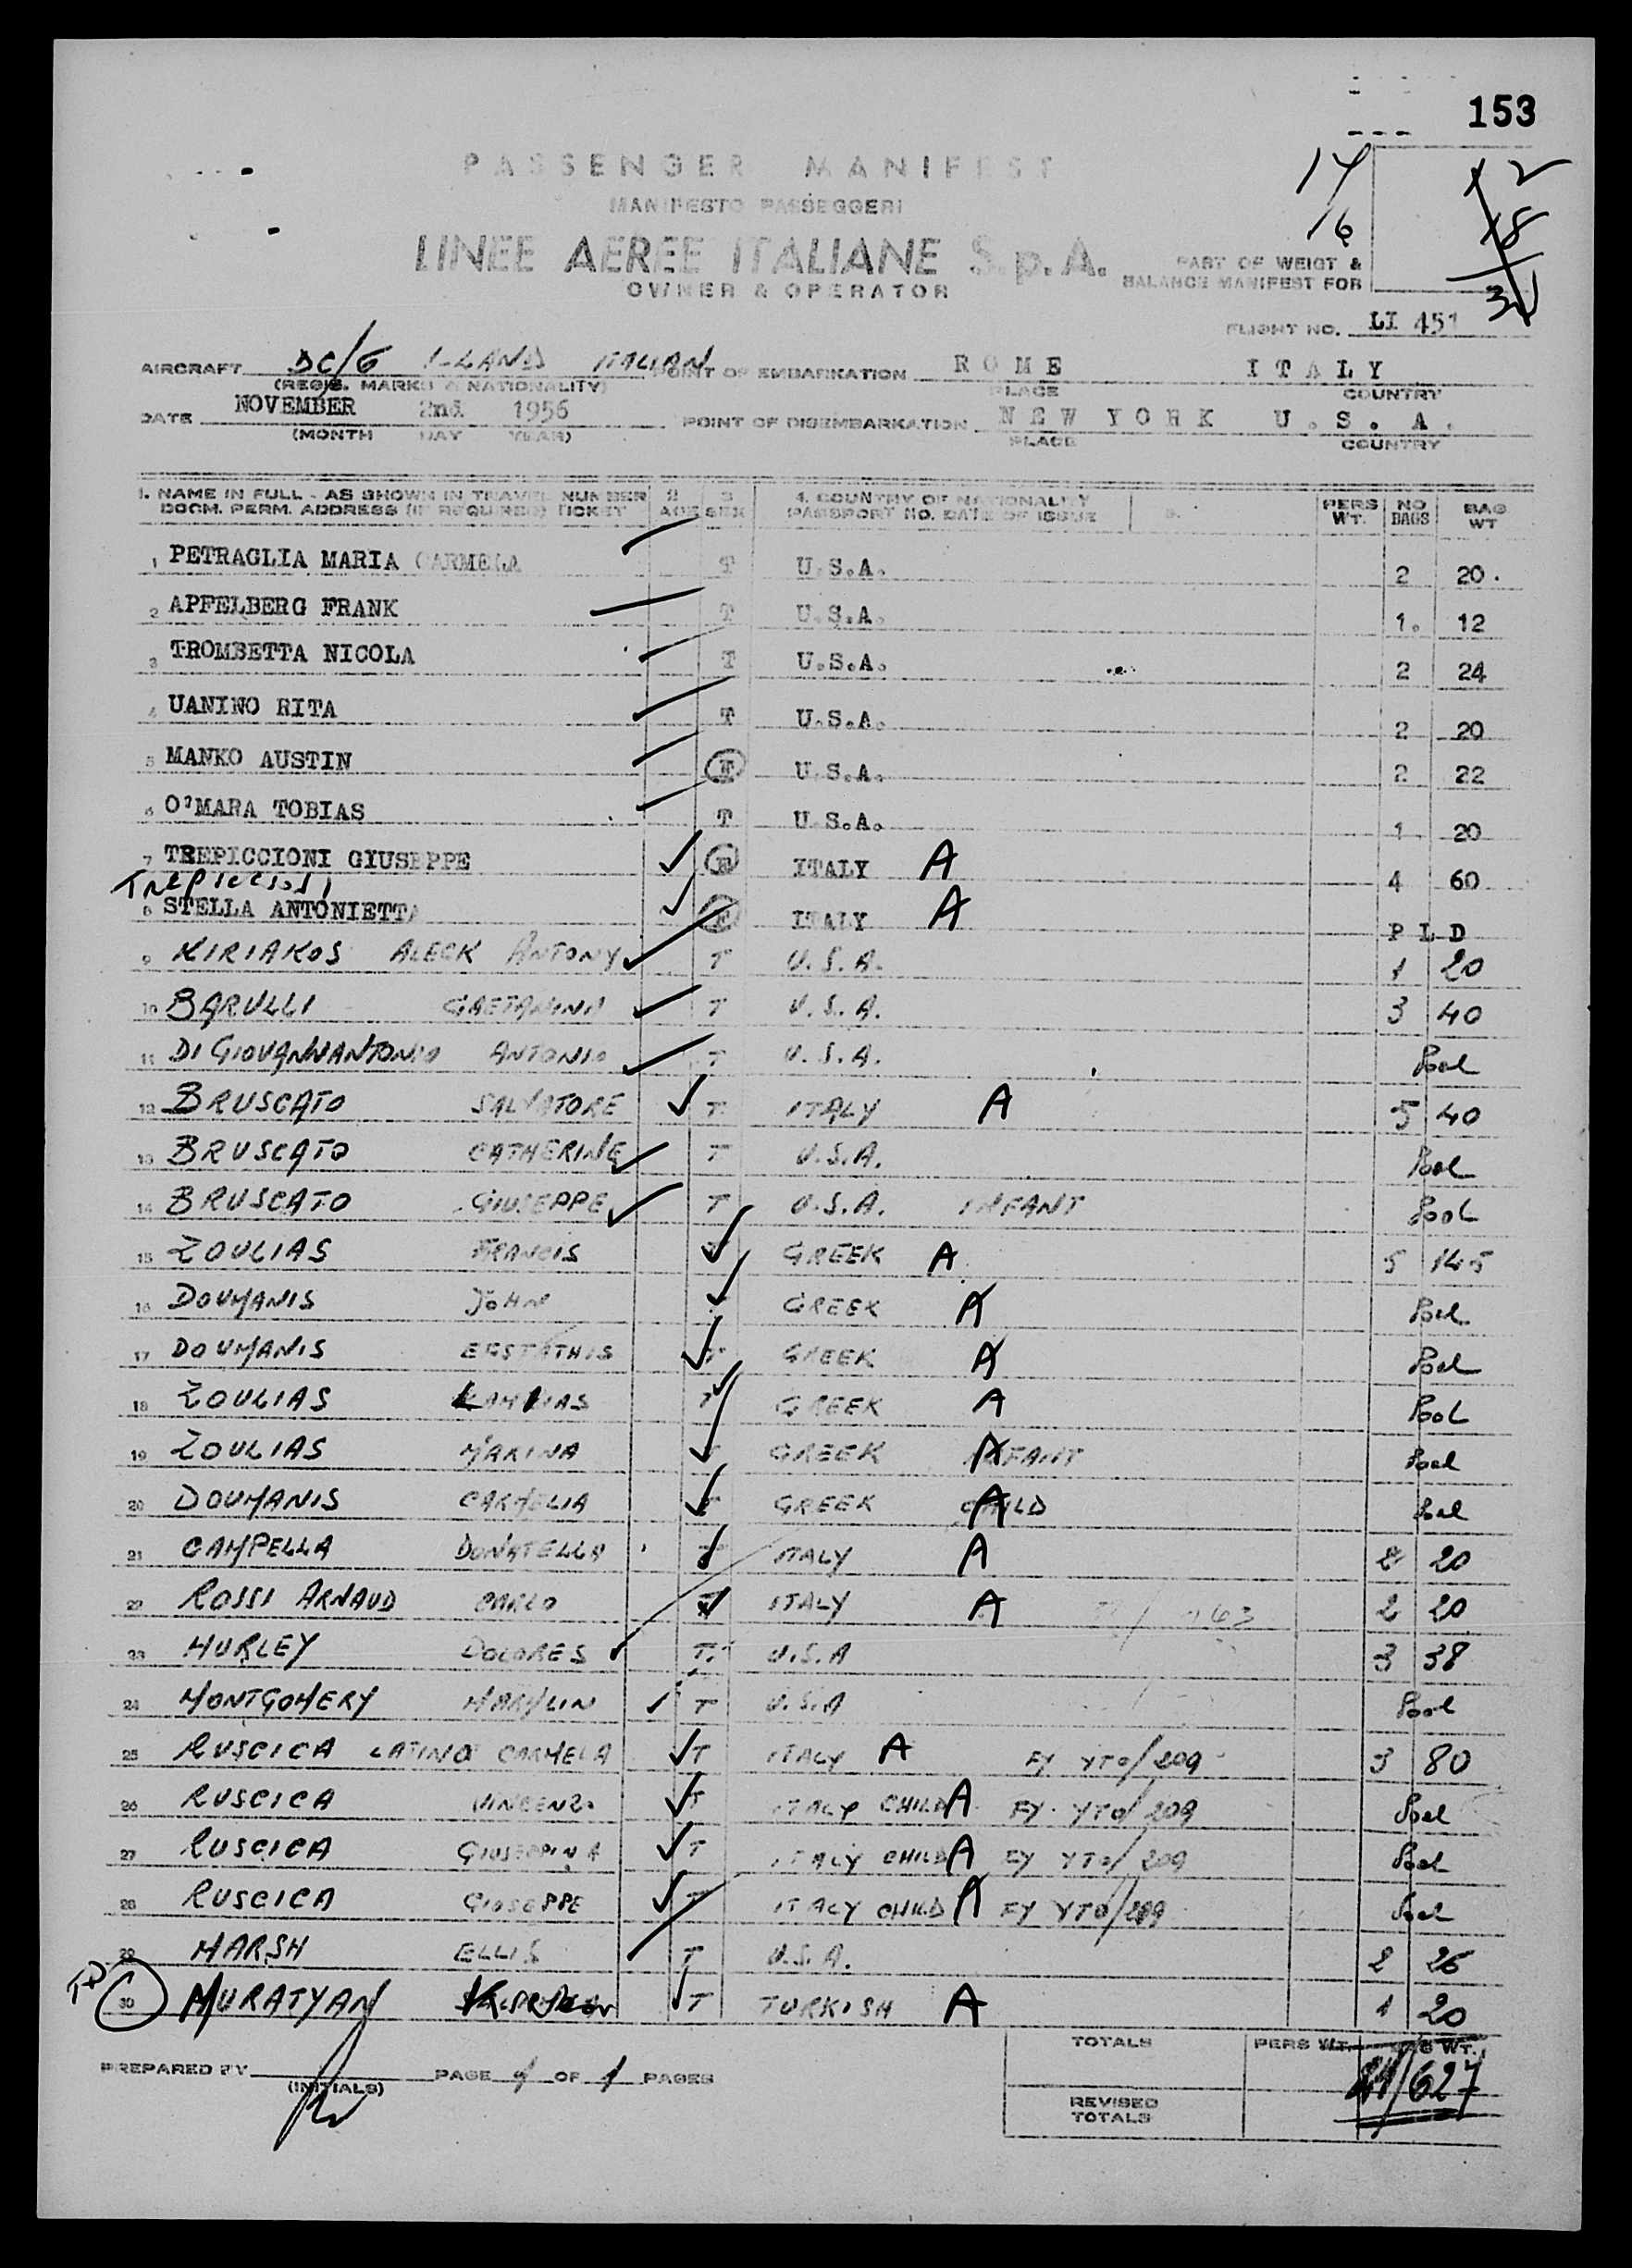 153
PASSENGER MANIFEST
MANIFESTO PASSEGGERI
LINEE AEREE ITALIANE S.p.A.
OWNER & OPERATOR
17
16
12
18
PART OF WEIGT &
BALANCE MANIFEST FOR
FLIGHT NO. LI 451
AIRCRAFT DC/6 I-LAND ITALIAN POINT OF EMBARKATION ROME ITALY
(REGIS. MARKS & NATIONALITY) PLACE COUNTRY
DATE NOVEMBER 2nd 1956 POINT OF DISEMBARKATION NEW YORK U.S.A.
(MONTH DAY YEAR) PLACE COUNTRY
1. NAME IN FULL - AS SHOWN IN TRAVEL NUMBER 2 3 4. COUNTRY OF NATIONALITY PERS NO BAG
DOCM. PERM. ADDRESS (IF REQUIRED) TICKET AGE SEX PASSPORT NO. DATE OF ISSUE WT. BAGS WT
1 PETRAGLIA MARIA CARMELA T U.S.A. 2 20.
2 APFELBERG FRANK T U.S.A. 1. 12
3 TROMBETTA NICOLA T U.S.A. 2 24
4 UANINO RITA T U.S.A. 2 20
5 MANKO AUSTIN T U.S.A. 2 22
6 O'MARA TOBIAS T U.S.A. 1 20
7 TREPICCIONI GIUSEPPE ITALY A 4 60
TREPICCIONI
8 STELLA ANTONIETTA ITALY A P L D
9 KIRIAKOS ALECK ANTONY T U.S.A. 1 20
10 BARULLI GAETANINO T U.S.A. 3 40
11 DI GIOVANNANTONIO ANTONIO T U.S.A. Pool
12 BRUSCATO SALVATORE T ITALY A 5 40
13 BRUSCATO CATHERINE T U.S.A. Pool
14 BRUSCATO GIUSEPPE T U.S.A. INFANT Pool
15 ZOULIAS FRANCIS GREEK A 5 145
16 DOUMANIS JOHN GREEK A Pool
17 DOUMANIS EUSTATHIS T GREEK A Pool
18 ZOULIAS T GREEK A Pool
19 ZOULIAS MARINA T GREEK INFANT A Pool
20 DOUMANIS CARMELIA T GREEK CHILD A Pool
21 CAMPELLA DONATELLA T ITALY A 2 20
22 ROSSI ARNAUD CARLO T ITALY A 2 20
23 HURLEY DOLORES T. U.S.A 3 38
24 MONTGOMERY MARYLIN T U.S.A Pool
25 RUSCICA LATINO CARMELA T ITALY A FY YTO/209 3 80
26 RUSCICA VINCENZO T ITALY CHILD A FY YTO/209 Pool
27 RUSCICA GIUSEPPINA T ITALY CHILD A FY YTO/209 Pool
28 RUSCICA GIUSEPPE T ITALY CHILD A FY YTO/209 Pool
29 MARSH ELLIS T U.S.A. 2 26
30 MURATYAN T TURKISH A 1 20
TOTALS PERS WT. WT.
PREPARED BY PAGE 1 OF 1 PAGES
(INITIALS)
41/627
REVISED
TOTALS